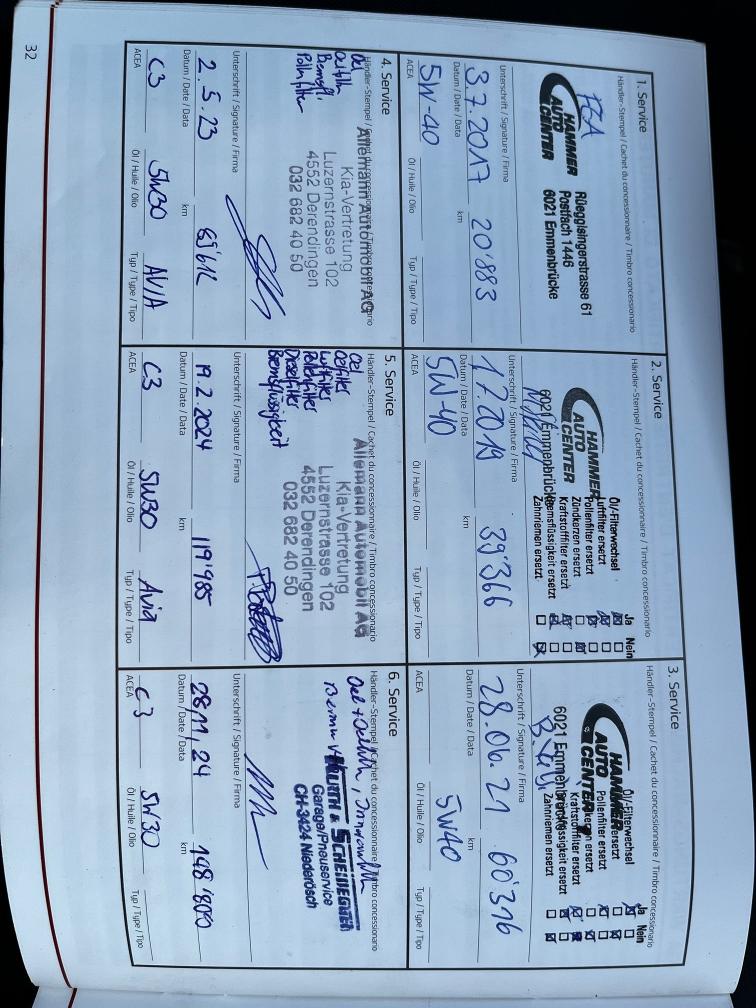 32
1. Service
Händler-Stempel / Cachet du concessionnaire / Timbro concessionario
HAMMER
AUTO
CENTER
Rüeggisingerstrasse 61
Postfach 1446
6021 Emmenbrücke
Unterschrift / Signature / Firma
3.7.2017 20'883
Datum / Date / Data km
5W-40
ACEA Öl / Huile / Olio Typ / Type / Tipo
2. Service
Händler-Stempel / Cachet du concessionnaire / Timbro concessionario
HAMMER
AUTO
CENTER
6021 Emmenbrücke
Ja Nein
Öl/-Filterwechsel
Luftfilter ersetzt
Pollenfilter ersetzt
Zündkerzen ersetzt
Kraftstofffilter ersetzt
Bremsflüssigkeit ersetzt
Zahnriemen ersetzt
Unterschrift / Signature / Firma
39'366
Datum / Date / Data km
5W-40
ACEA Öl / Huile / Olio Typ / Type / Tipo
3. Service
Händler-Stempel / Cachet du concessionnaire / Timbro concessionario
HAMMER
AUTO
CENTER
6021 Emmenbrücke
Ja Nein
Öl/-Filterwechsel
Pollenfilter ersetzt
Kraftstofffilter ersetzt
Zahnriemen ersetzt
Unterschrift / Signature / Firma
28.06.21 60'316
Datum / Date / Data km
5W40
ACEA Öl / Huile / Olio Typ / Type / Tipo
4. Service
Händler-Stempel / Cachet du concessionnaire / Timbro concessionario
Oel
Oelfilter
Pollenfilter
Allemann Automobil AG
Kia-Vertretung
Luzernstrasse 102
4552 Derendingen
032 682 40 50
Unterschrift / Signature / Firma
2.5.23
Datum / Date / Data km
C3 5W30 AVIA
ACEA Öl / Huile / Olio Typ / Type / Tipo
5. Service
Händler-Stempel / Cachet du concessionnaire / Timbro concessionario
Oel
Oelfilter
Luftfilter
Pollenfilter
Dieselfilter
Bremsflüssigkeit
Allemann Automobil AG
Kia-Vertretung
Luzernstrasse 102
4552 Derendingen
032 682 40 50
Unterschrift / Signature / Firma
19.2.2024 119'985
Datum / Date / Data km
C3 5W30 Avia
ACEA Öl / Huile / Olio Typ / Type / Tipo
6. Service
Händler-Stempel / Cachet du concessionnaire / Timbro concessionario
Oel + Oelfilter,
& SCHEIDEGGER
Garage/Pneuservice
CH-3424 Niederösch
Unterschrift / Signature / Firma
28.11.24 148'800
Datum / Date / Data km
C3 5W30
ACEA Öl / Huile / Olio Typ / Type / Tipo